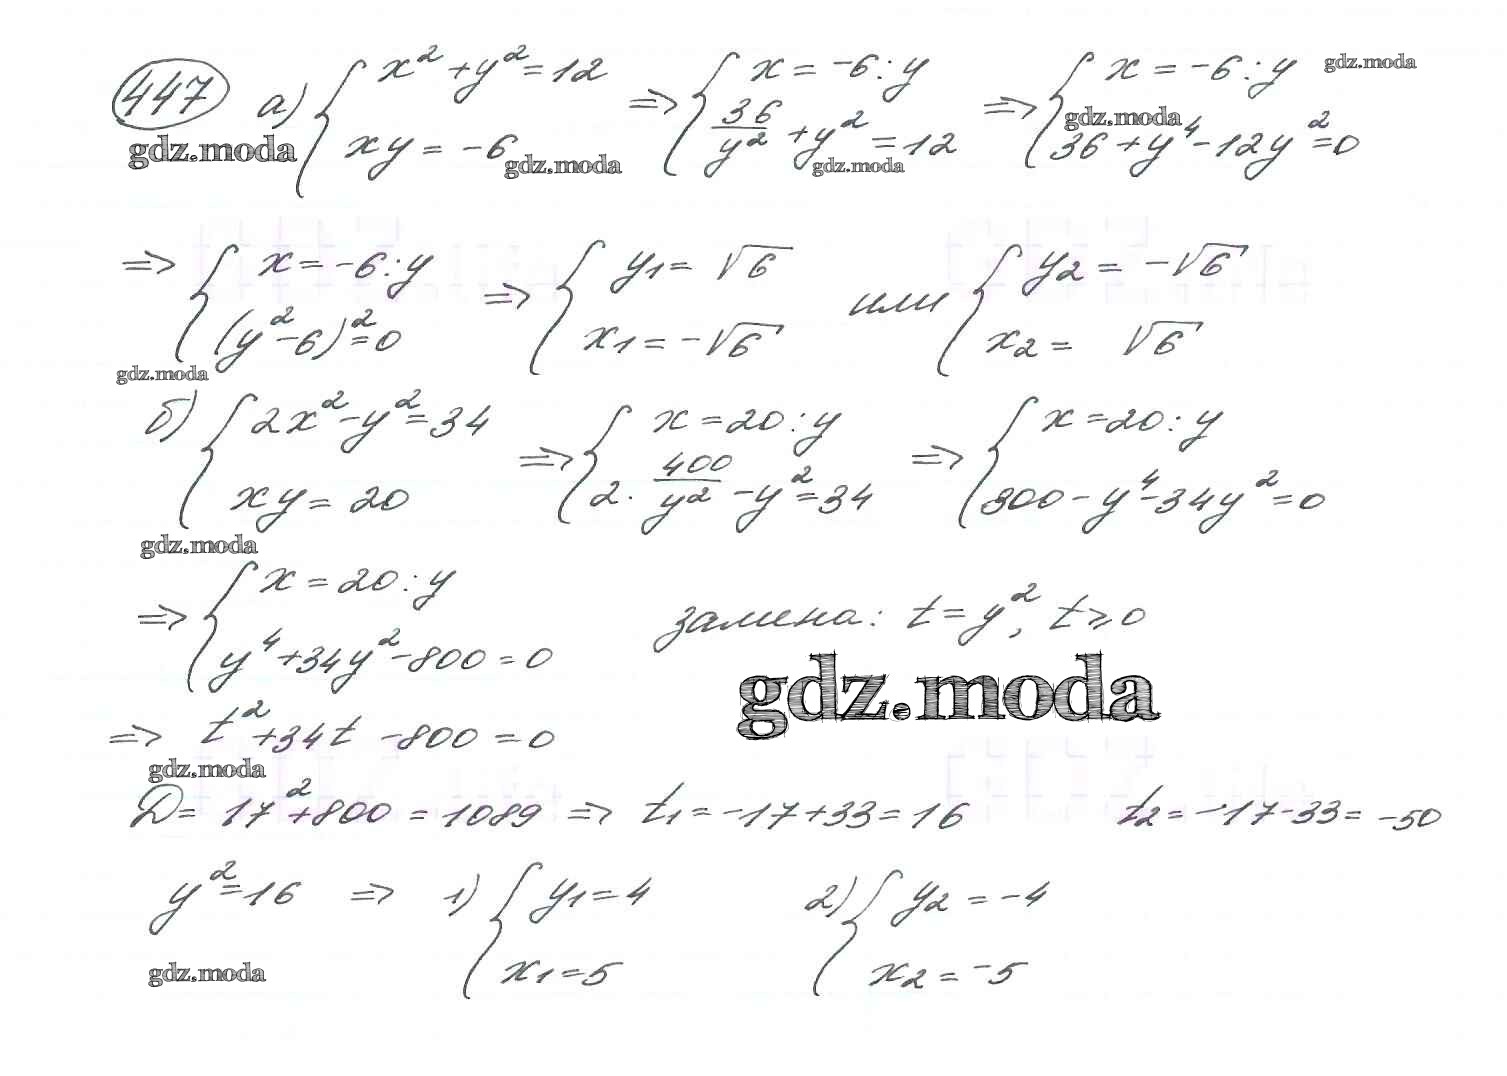 447 а) { x² + y² = 12 ; xy = -6 => { x = -6 : y ; 36/y² + y² = 12 => { x = -6 : y ; 36 + y⁴ - 12y² = 0 gdz.moda
gdz.moda gdz.moda gdz.moda gdz.moda
=> { x = -6 : y ; (y² - 6)² = 0 => { y1 = √6 ; x1 = -√6 или { y2 = -√6 ; x2 = √6
gdz.moda
б) { 2x² - y² = 34 ; xy = 20 => { x = 20 : y ; 2 · 400/y² - y² = 34 => { x = 20 : y ; 800 - y⁴ - 34y² = 0
gdz.moda
=> { x = 20 : y ; y⁴ + 34y² - 800 = 0 замена: t = y², t ≥ 0
gdz.moda
=> t² + 34t - 800 = 0
gdz.moda
D = 17² + 800 = 1089 => t1 = -17 + 33 = 16 t2 = -17 - 33 = -50
y² = 16 => 1) { y1 = 4 ; x1 = 5 2) { y2 = -4 ; x2 = -5
gdz.moda